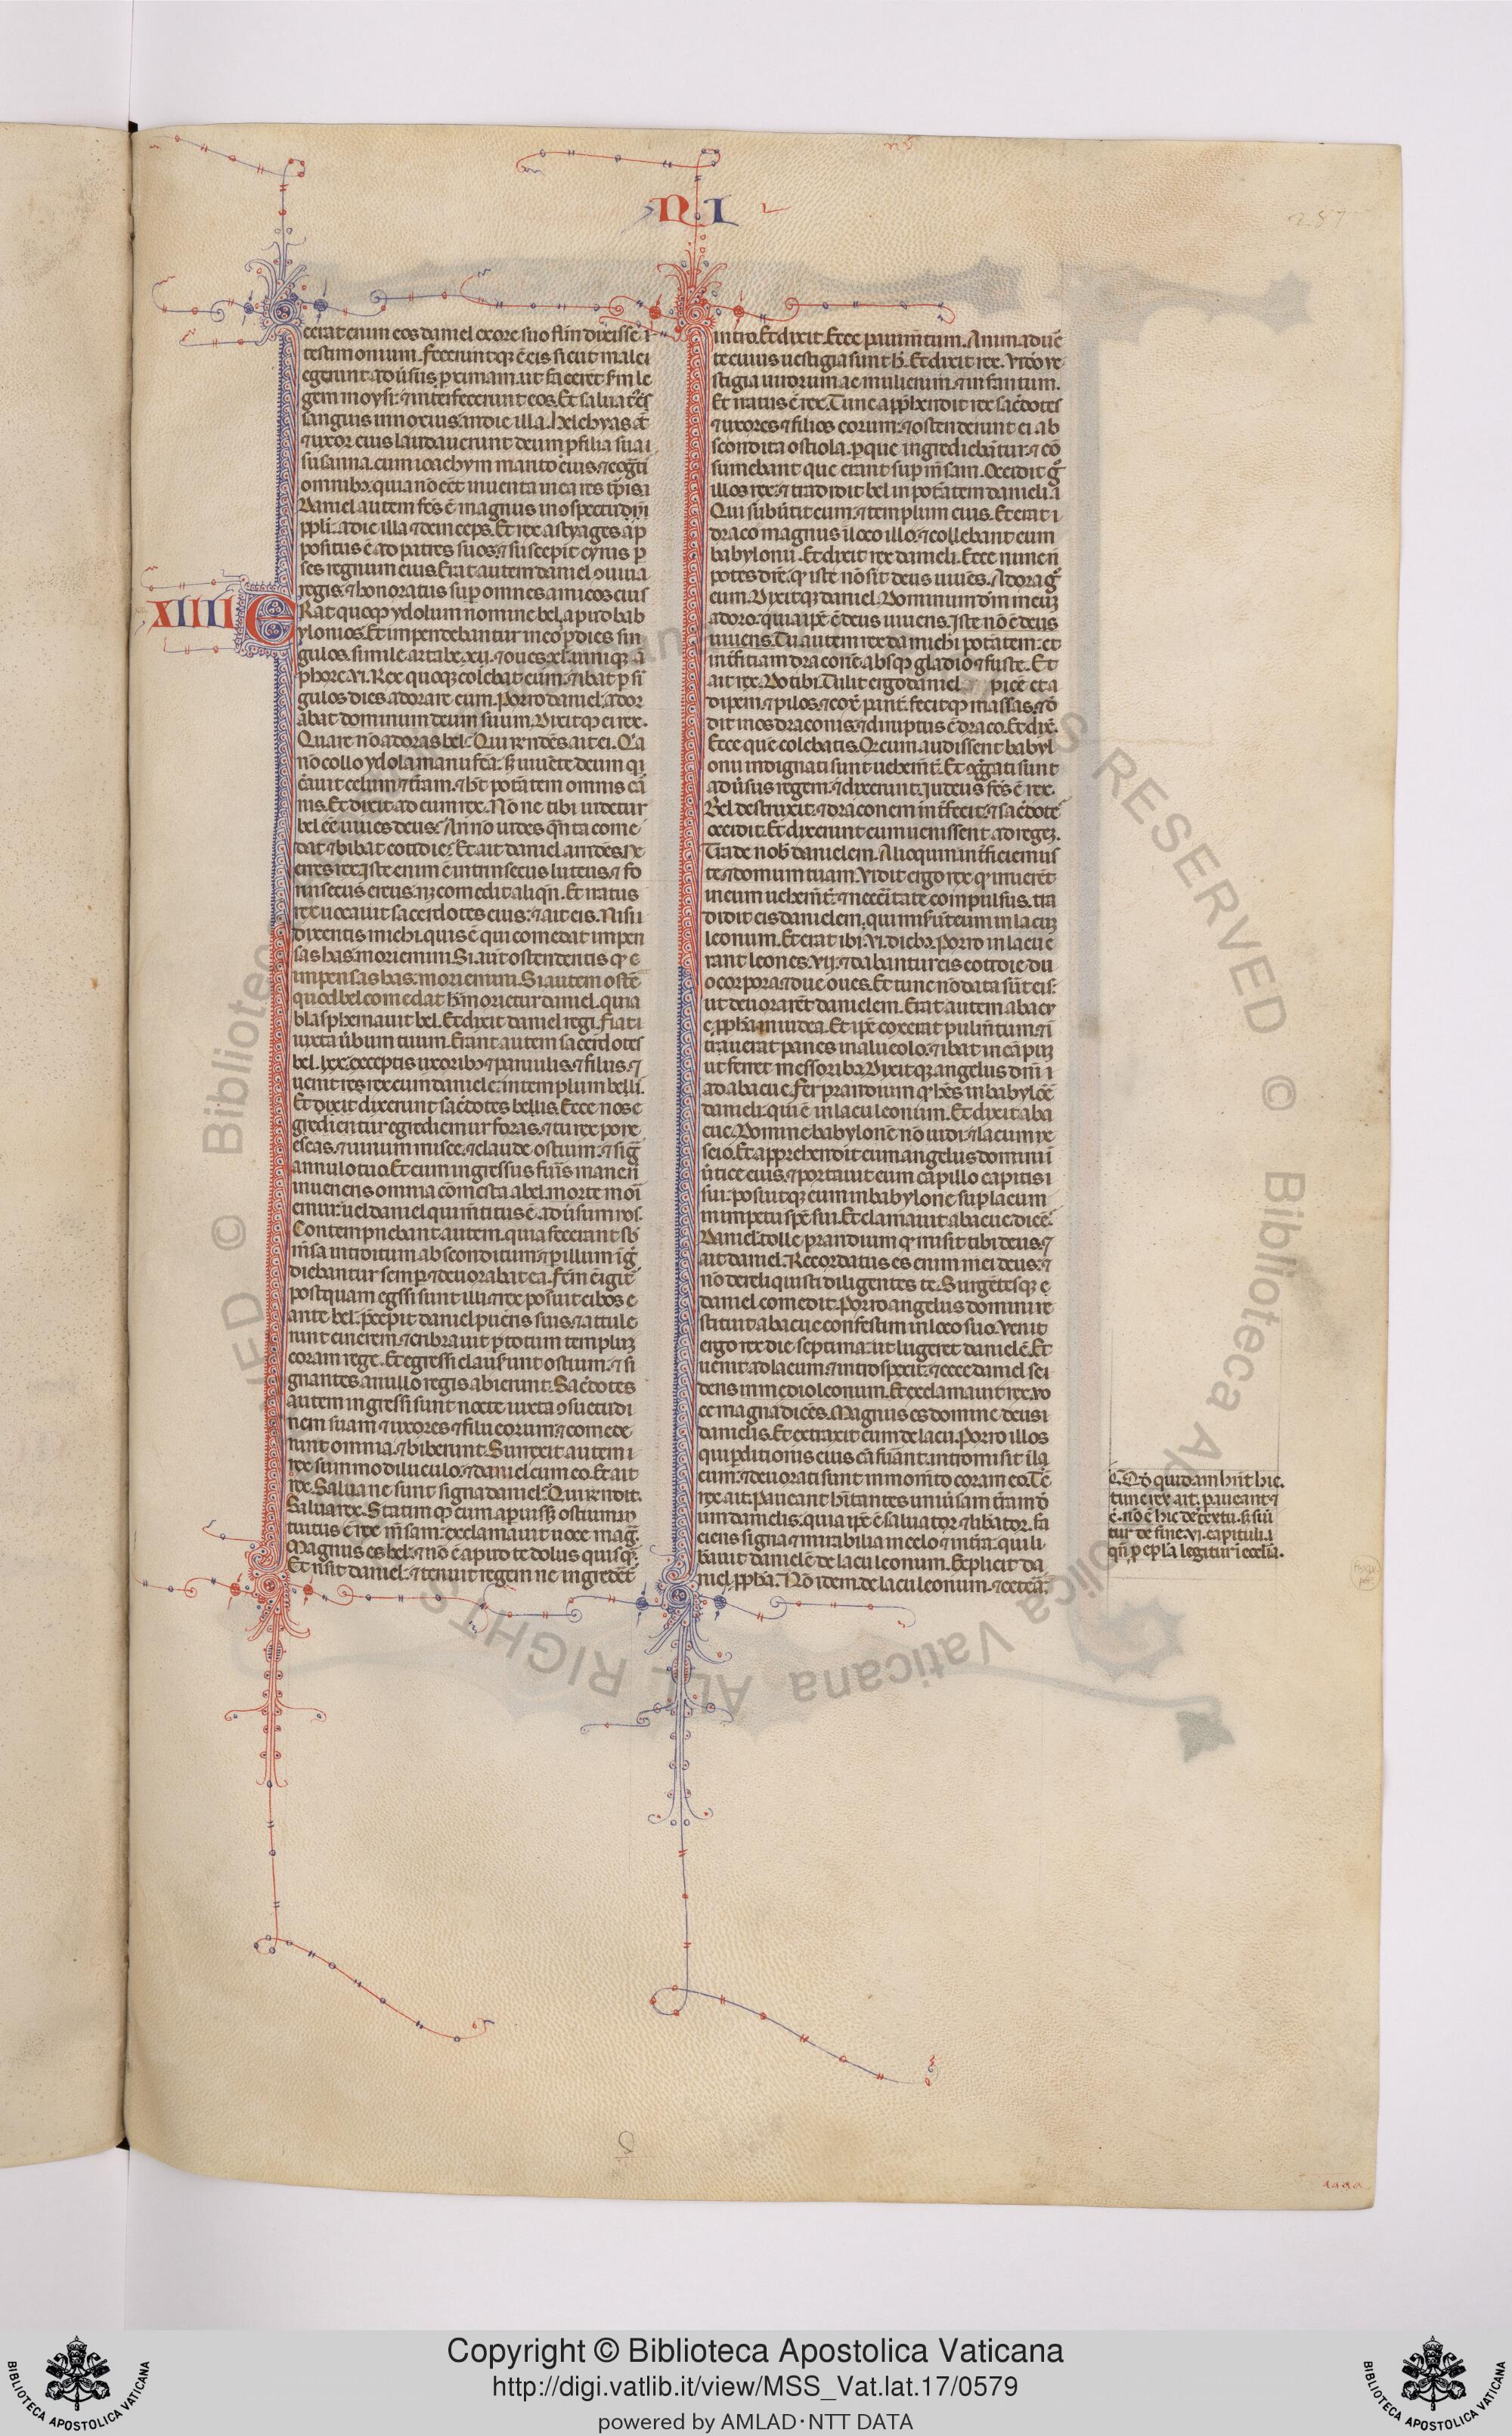 NI
257
cerat enim eos daniel ex ore suo flm dixisse i
testimonium. feceruntqꝫ ẽ eis sicut male i
egerunt aduersus proximam. ut facerẽt sm le
gem moysi. ⁊ interfecerunt eos. Et saluatꝰ ẽ
sanguis innoxius in die illa. helchyas at̃
⁊ uxor eius laudauerunt deum ꝓ filia sua i
susanna. cum ioachym marito eius. ⁊ cog̃ti
omnibꝫ. quia nõ eẽt inuenta in ea res tp̃is i
Daniel autem fcũs ẽ magnus in ospectu dñi
ppli. a die illa ⁊ deinceps. Et rex astyages ap̃
positus ẽ ad patres suos. ⁊ suscepit cyrus ꝑ
ses regnum eius. Erat autem daniel ↄuiua
regis. ⁊ honoratus sup omnes amicos eius
XIIII ERat quoqꝫ ydolum nomine bel apud bab
ylonios. Et impendebantur in eo ꝑ dies sin
gulos. simile artabe. xij. ⁊ oues. xl. uiniqꝫ ã
phore. vi. Rex quoqꝫ colebat eum. ⁊ ibat ꝑ si
gulos dies adorare eum. Porro daniel. ador
abat dominum deum suum. Dixitqꝫ ei rex.
Quare nõ adoras bel. Qui rñdẽs ait ei. Q̃a
nõ colo ydola manufcã. sꝫ uiuẽtẽ deum qi
c̃auit celum ⁊ t̃ram. ⁊ hꝫ potãtem omnis cã
nis. Et dixit ad eum rex. Nõne tibi uidetur
bel eẽ uiues deus. An nõ uides qñta come
dat ⁊ bibat cottdie. Et ait daniel arridẽs. Ne
erres rex. iste enim ẽ intrinsecus luteus. ⁊ fo
rinsecus ereus. nꝫ comedit aliqñ. Et iratus
rex uocauit sacerdotes eius. ⁊ ait eis. Nisi i
dixeritis michi. quis ẽ qui comedat impen
sas has. moriemini. Si aũt ostenderitis qꝫ e
impensas has. moriemini. Si autem ostẽ
quod bel comedat h̃. morietur daniel. quia
blasphemauit bel. Et dixit daniel regi. Fiat i
iuxta ũbum tuum. Erant autem sacerdotes
bel. lxx. exceptis uxoribꝫ ⁊ paruulis. ⁊ filiis. ⁊
uenit res rex cum daniele. in templum belli.
Et dixit dixerunt sac̃dotes bellis. Ecce nos e
gredientur egrediemur foras. ⁊ tu rex pone
escas. ⁊ uinum misce. ⁊ claude ostium. ⁊ sig̃
annulo tuo. Et cum ingressus fuĩs mane ñ
inueneris omnia cõmesta a bel. morte moĩ
emur. uel daniel qui m̃titus ẽ aduersum nos.
Contempnebant autem. quia fecerant sb
m̃sa introitum absconditum. ⁊ ꝑ illum ig̃
diebantur semp ⁊ deuorabat ea. fcm̃ ẽ igit̃
postquam eg̃ssi sunt illi. ⁊ rex posuit cibos e
ante bel. p̃cepit daniel pueris suis. ⁊ attule
runt cinerem. ⁊ cribrauit ꝑ totum templuꝫ
coram rege. Et egressi clauserunt ostium. ⁊ si
gnantes anullo regis abierunt. Sac̃dotes
autem ingressi sunt nocte iuxta ↄsuetudi
nem suam ⁊ uxores ⁊ filii eorum. ⁊ comede
runt omnia. ⁊ biberunt. Surrexit autem i
rex summo diluculo. ⁊ daniel cum eo. Et ait
rex. Salua ne sunt signa daniel. Qui rñdit.
Salua rex. Statim qꝫ cum apuissꝫ ostium. in
tuitus ẽ rex m̃sam. exclamauit uoce mag̃.
Magnus es bel. ⁊ nõ ẽ apud te dolus quisq̃.
Et risit daniel. ⁊ tenuit regem ne ingredẽt
intro. Et dixit. Ecce pauim̃tum. Animaduẽ
te cuius uestigia sunt h̃. Et dixit rex. Video ue
stigia uirorum ac mulierum. ⁊ infantum.
Et iratus ẽ rex. Tunc appͥhendit rex sac̃dotes
⁊ uxores ⁊ filios eorum. ⁊ ostenderunt ei ab
scondita ostiola. ꝑ que ingrediebãtur. ⁊ cõ
sumebant que erant sup m̃sam. Occidit g̃
illos rex. ⁊ tradidit bel in potãtem danieli. i
Qui subũtit eum. ⁊ templum eius. Et erat i
draco magnus ĩ loco illo. ⁊ collebant eum
babylonii. Et dixit rex danieli. Ecce nunc ñ
potes dicẽ. qꝫ iste nõ sit deus uiuẽs. Adora g̃
eum. Dixitqꝫ daniel. Dominum dñm meuꝫ
adoro. quia ipẽ ẽ deus uiuens. Iste nõ ẽ deus
uiuens. Tu autem rex da michi potãtem. et
int̃ficiam draconẽ absqꝫ gladio ⁊ fuste. Et
ait rex. Do tibi. Tulit ergo daniel picẽ et a
dipem. ⁊ pilos. ⁊ coxͥ parit̃. fecitqꝫ massas. ⁊ dẽ
dit in os draconis. ⁊ diruptus ẽ draco. Et dix̃.
Ecce quẽ colebatis. Q̃ cum audissent babyl
onii indignati sunt uehem̃t̃. Et ↄg̃gati sunt
adũsus regem. ⁊ dixerunt. Iudeus fcũs ẽ rex.
Bel destruxit. ⁊ draconem int̃fecit. ⁊ sac̃dote
occidit. Et dixerunt cum uenissent ad regeꝫ.
Trade nob̃ danielem. Alioquin int̃ficiemus
te ⁊ domum tuam. Vidit ergo rex qꝫ irruerẽt
in eum uehem̃t̃. ⁊ necc̃itate compulsus. tra
didit eis danielem. qui mis̃ũt eum in lacuꝫ
leonum. Et erat ibi. vi. diebꝫ. Porro in lacu e
rant leones. vij. ⁊ dabantur eis cottdie du
o corpora. ⁊ due oues. Et tunc nõ data sũt eis.
ut deuorarẽt danielem. Erat autem abacu
c pph̃a in iudea. Et ipẽ coxerat pulm̃tum. ⁊ ĩ
triuerat panes in alueolo. ⁊ ibat in cãpuꝫ
ut ferret messoribꝫ. Dixitqꝫ angelus dñi. i
ad abacuc. Fer prandium qꝫ hẽs in babylõẽ
danieli. qui ẽ in lacu leonum. Et dixit aba
cuc. Domine babylonẽ nõ uidi. ⁊ lacum ne
scio. Et apprehendit eum angelus domini ĩ
ũtice eius. ⁊ portauit eum capillo capitis i
sui. posuitqꝫ eum in babylone sup lacum
in impetu spẽ sui. Et clamauit abacuc dicẽ.
Daniel. tolle prandium qꝫ misit tibi deus. ⁊
ait daniel. Recordatus es enim mei deus. ⁊
nõ dereliquisti diligentes te. Surgẽtesqꝫ e
daniel comedit. Porro angelus domini re
stituit abacuc confestim in loco suo. Venit
ergo rex die septima. ut lugeret danielẽ. Et
uenit ad lacum. ⁊ introspexit. ⁊ ecce daniel sei
dens in medio leonum. Et exclamauit rex. uo
ce magna dicẽs. Magnus es domine deus i
danielis. Et extraxit eum de lacu. Porro illos
qui ꝑditionis eius cã fũant. intromisit ĩ laq̃
cum. ⁊ deuorati sunt in momẽto coram eo. Tẽ
rex ait. Paueant hĩtantes uniũsam t̃ram dõ
um danielis. quia ipẽ ẽ saluator ⁊ libator. fa
ciens signa ⁊ mirabilia in celo ⁊ in t̃ra. qui li
bauit danielẽ de lacu leonum. Explicit da
niel ppha. Nõ idem de lacu leonum. ⁊ cetẽa.
quidam hñt hic.
tunc rex ait. paueant ⁊
c̃. nõ ẽ hic de textu. sꝫ sũi
tur de fine. vi. capituli. i
qñ ꝑ ep̃la legitur ĩ eccl̃ia.
Copyright © Biblioteca Apostolica Vaticana
http://digi.vatlib.it/view/MSS_Vat.lat.17/0579
powered by AMLAD·NTT DATA
BIBLIOTECA APOSTOLICA VATICANA
BIBLIOTECA APOSTOLICA VATICANA